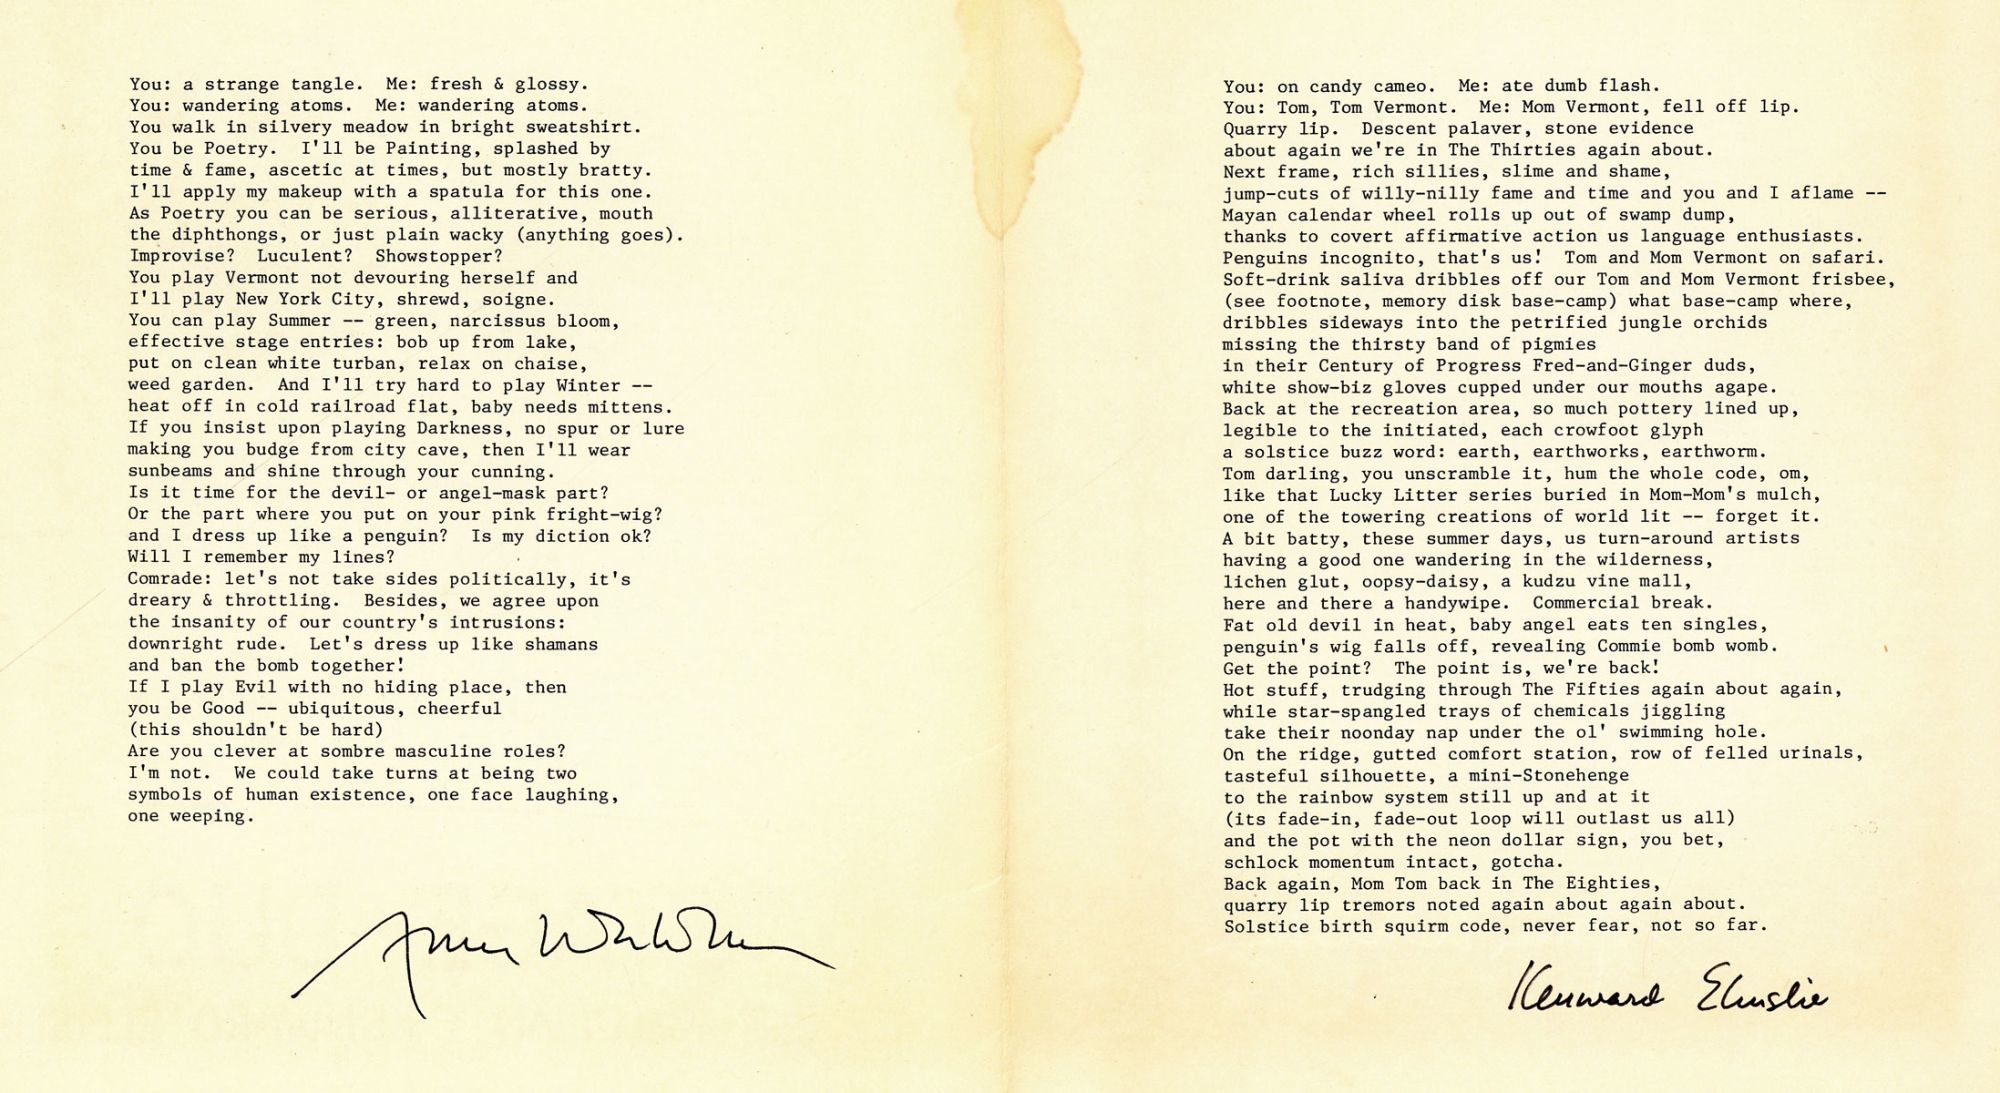 You: a strange tangle.  Me: fresh & glossy.
You: wandering atoms.  Me: wandering atoms.
You walk in silvery meadow in bright sweatshirt.
You be Poetry.  I'll be Painting, splashed by
time & fame, ascetic at times, but mostly bratty.
I'll apply my makeup with a spatula for this one.
As Poetry you can be serious, alliterative, mouth
the diphthongs, or just plain wacky (anything goes).
Improvise?  Luculent?  Showstopper?
You play Vermont not devouring herself and
I'll play New York City, shrewd, soigne.
You can play Summer -- green, narcissus bloom,
effective stage entries: bob up from lake,
put on clean white turban, relax on chaise,
weed garden.  And I'll try hard to play Winter --
heat off in cold railroad flat, baby needs mittens.
If you insist upon playing Darkness, no spur or lure
making you budge from city cave, then I'll wear
sunbeams and shine through your cunning.
Is it time for the devil- or angel-mask part?
Or the part where you put on your pink fright-wig?
and I dress up like a penguin?  Is my diction ok?
Will I remember my lines?
Comrade: let's not take sides politically, it's
dreary & throttling.  Besides, we agree upon
the insanity of our country's intrusions:
downright rude.  Let's dress up like shamans
and ban the bomb together!
If I play Evil with no hiding place, then
you be Good -- ubiquitous, cheerful
(this shouldn't be hard)
Are you clever at sombre masculine roles?
I'm not.  We could take turns at being two
symbols of human existence, one face laughing,
one weeping.
Anne Waldman
You: on candy cameo.  Me: ate dumb flash.
You: Tom, Tom Vermont.  Me: Mom Vermont, fell off lip.
Quarry lip.  Descent palaver, stone evidence
about again we're in The Thirties again about.
Next frame, rich sillies, slime and shame,
jump-cuts of willy-nilly fame and time and you and I aflame --
Mayan calendar wheel rolls up out of swamp dump,
thanks to covert affirmative action us language enthusiasts.
Penguins incognito, that's us!  Tom and Mom Vermont on safari.
Soft-drink saliva dribbles off our Tom and Mom Vermont frisbee,
(see footnote, memory disk base-camp) what base-camp where,
dribbles sideways into the petrified jungle orchids
missing the thirsty band of pigmies
in their Century of Progress Fred-and-Ginger duds,
white show-biz gloves cupped under our mouths agape.
Back at the recreation area, so much pottery lined up,
legible to the initiated, each crowfoot glyph
a solstice buzz word: earth, earthworks, earthworm.
Tom darling, you unscramble it, hum the whole code, om,
like that Lucky Litter series buried in Mom-Mom's mulch,
one of the towering creations of world lit -- forget it.
A bit batty, these summer days, us turn-around artists
having a good one wandering in the wilderness,
lichen glut, oopsy-daisy, a kudzu vine mall,
here and there a handywipe.  Commercial break.
Fat old devil in heat, baby angel eats ten singles,
penguin's wig falls off, revealing Commie bomb womb.
Get the point?  The point is, we're back!
Hot stuff, trudging through The Fifties again about again,
while star-spangled trays of chemicals jiggling
take their noonday nap under the ol' swimming hole.
On the ridge, gutted comfort station, row of felled urinals,
tasteful silhouette, a mini-Stonehenge
to the rainbow system still up and at it
(its fade-in, fade-out loop will outlast us all)
and the pot with the neon dollar sign, you bet,
schlock momentum intact, gotcha.
Back again, Mom Tom back in The Eighties,
quarry lip tremors noted again about again about.
Solstice birth squirm code, never fear, not so far.
Kenward Elmslie